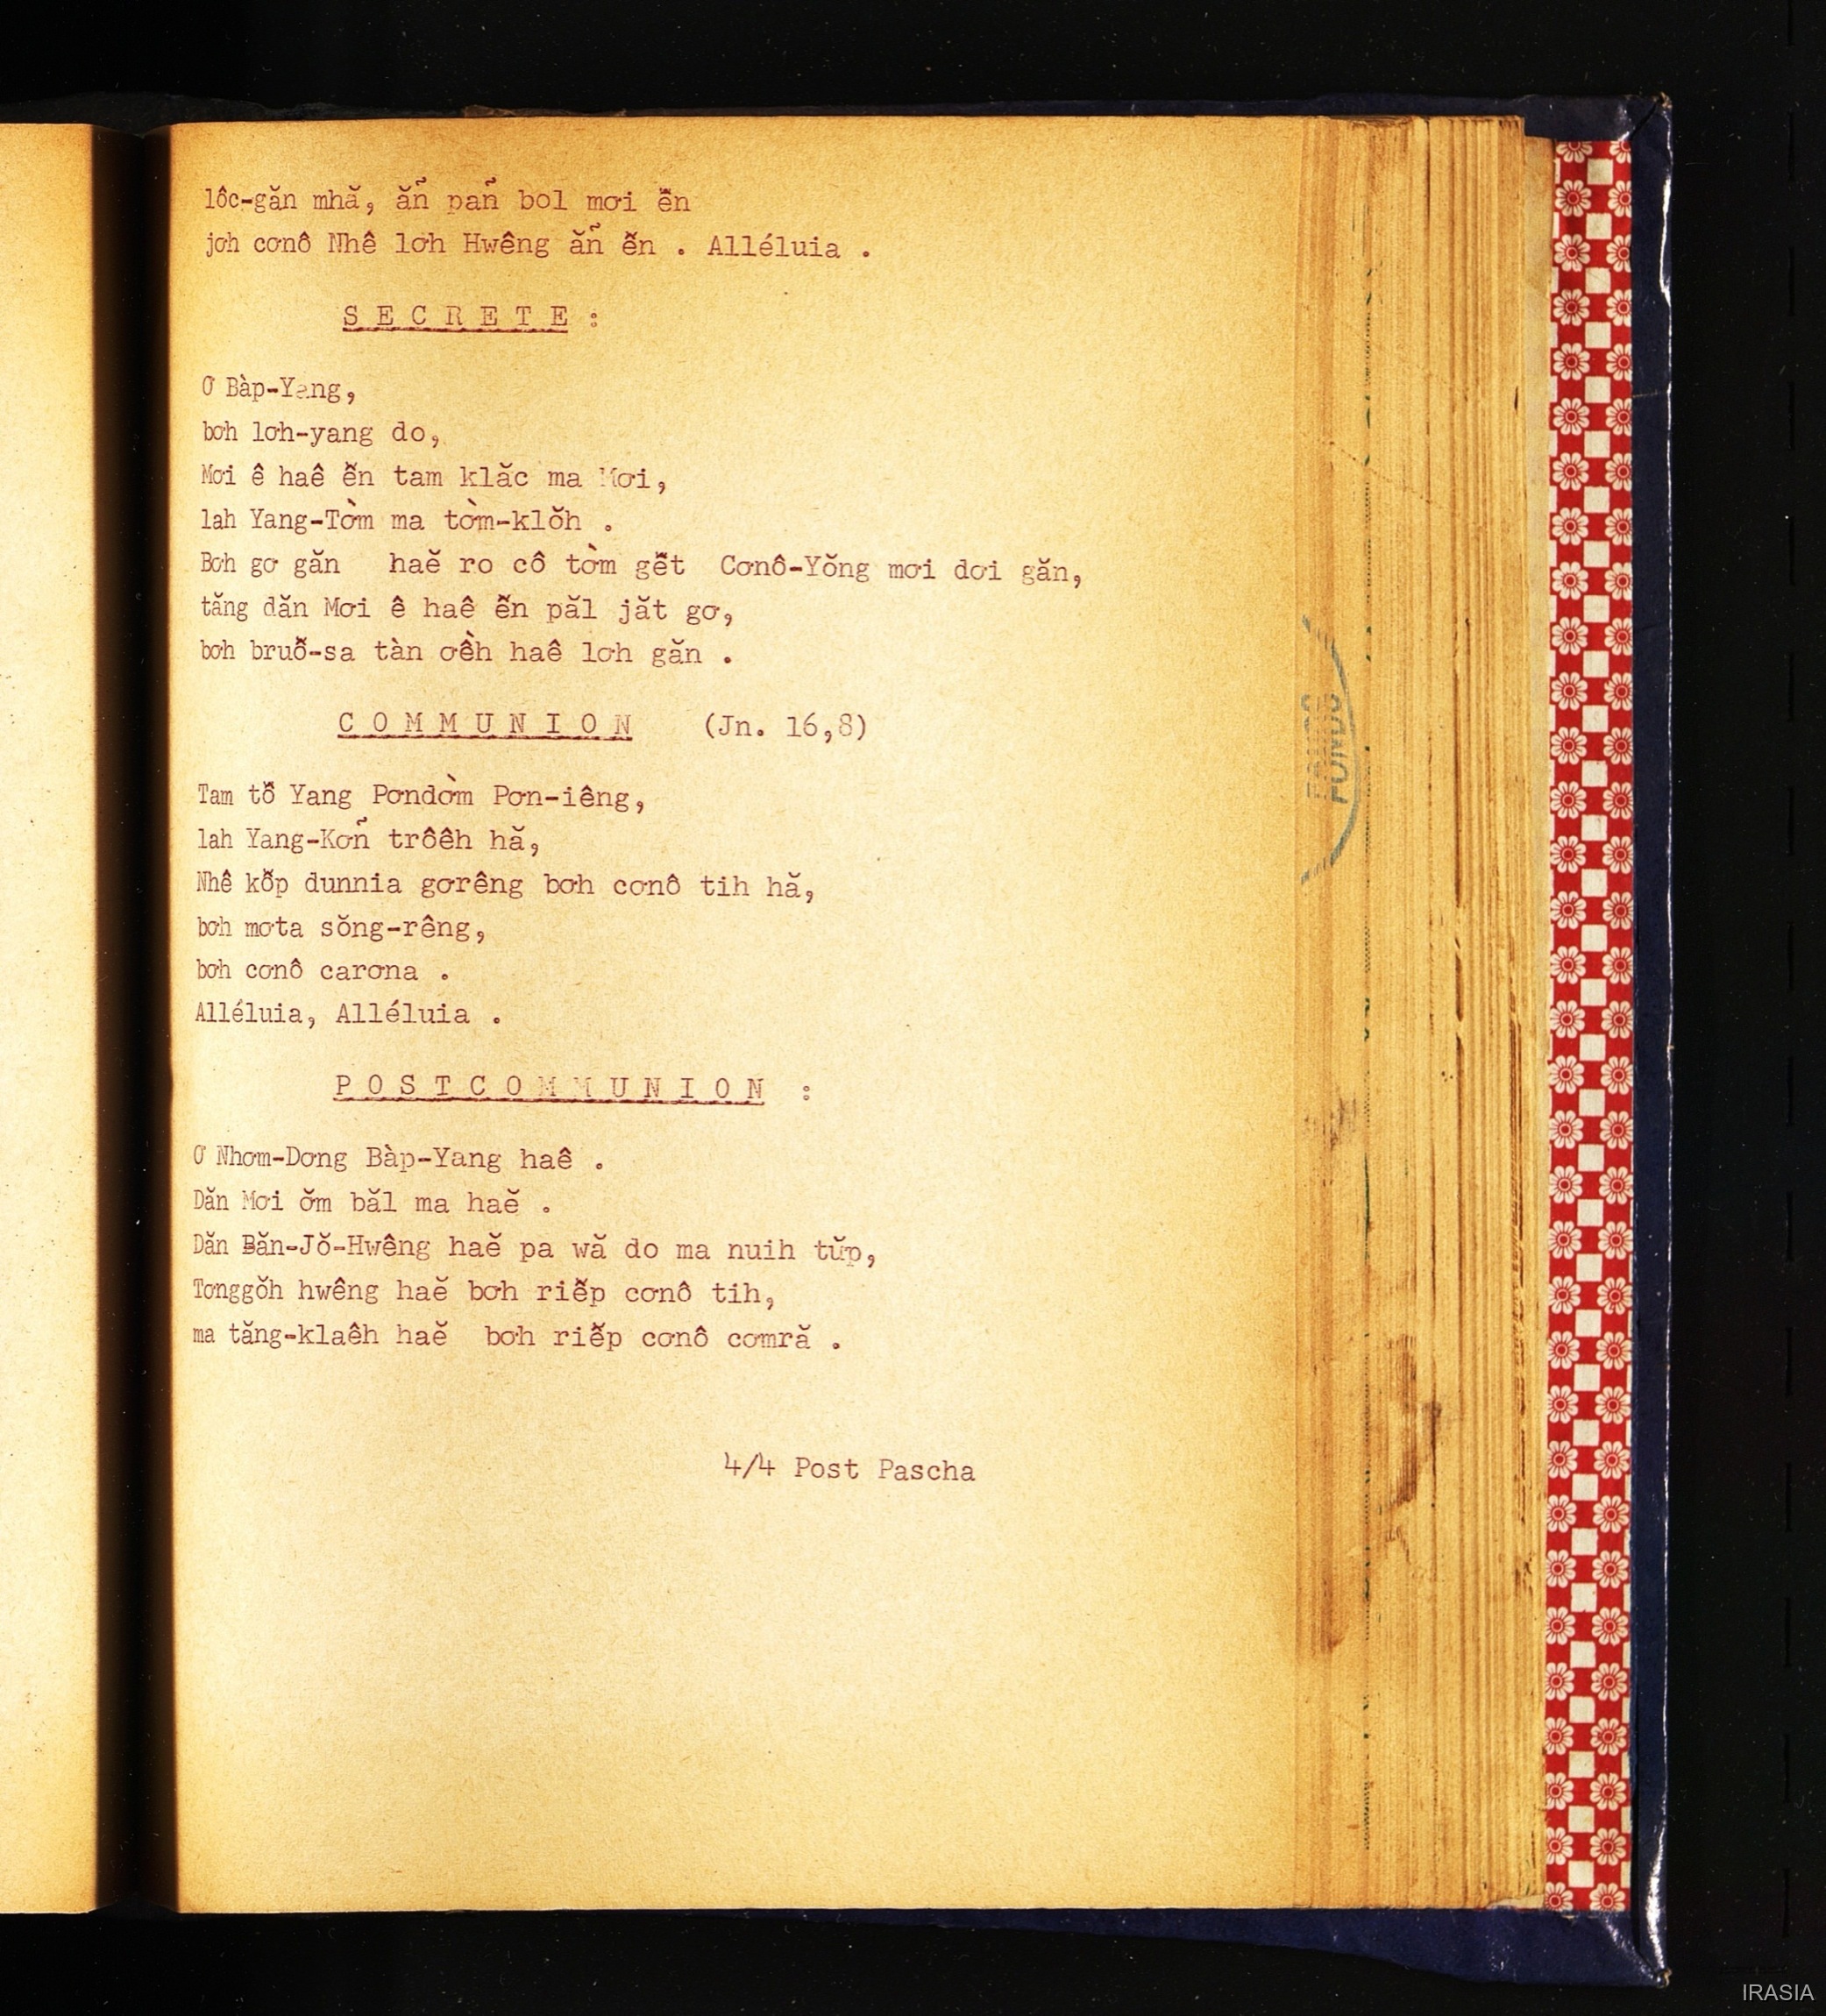 lôc-găn mhă, ăn̆̃ pan̆̃ bol mơi ê̆n
jơh cơnô Nhê lơh Hwêng ăn̆̃ ê̆n . Alléluia .
S E C R E T E :
Ơ Bàp-Yang,
bơh lơh-yang do,
Mơi ê haê ê̆n tam klăc ma Mơi,
lah Yang-Tờm ma tờm-klŏh .
Bơh gơ găn haĕ ro cô tờm gê̆t Cơnô-Yŏng mơi dơi găn,
tăng dăn Mơi ê haê ê̆n păl jăt gơ,
bơh bruô̆-sa tàn ơềh haê lơh găn .
C O M M U N I O N (Jn. 16,8)
Tam tô̆ Yang Pơndờm Pơn-iêng,
lah Yang-Kơn̆̃ trôêh hă,
Nhê kô̆p dunnia gơrêng bơh cơnô tih hă,
bơh mơta sŏng-rêng,
bơh cơnô carơna .
Alléluia, Alléluia .
P O S T C O M M U N I O N :
Ơ Nhơm-Dơng Bàp-Yang haê .
Dăn Mơi ơ̆m băl ma haĕ .
Dăn Băn-Jŏ-Hwêng haĕ pa wă do ma nuih tŭp,
Tơnggŏh hwêng haĕ bơh riê̆p cơnô tih,
ma tăng-klaêh haĕ bơh riê̆p cơnô cơmră .
4/4 Post Pascha
FONDS
IRASIA